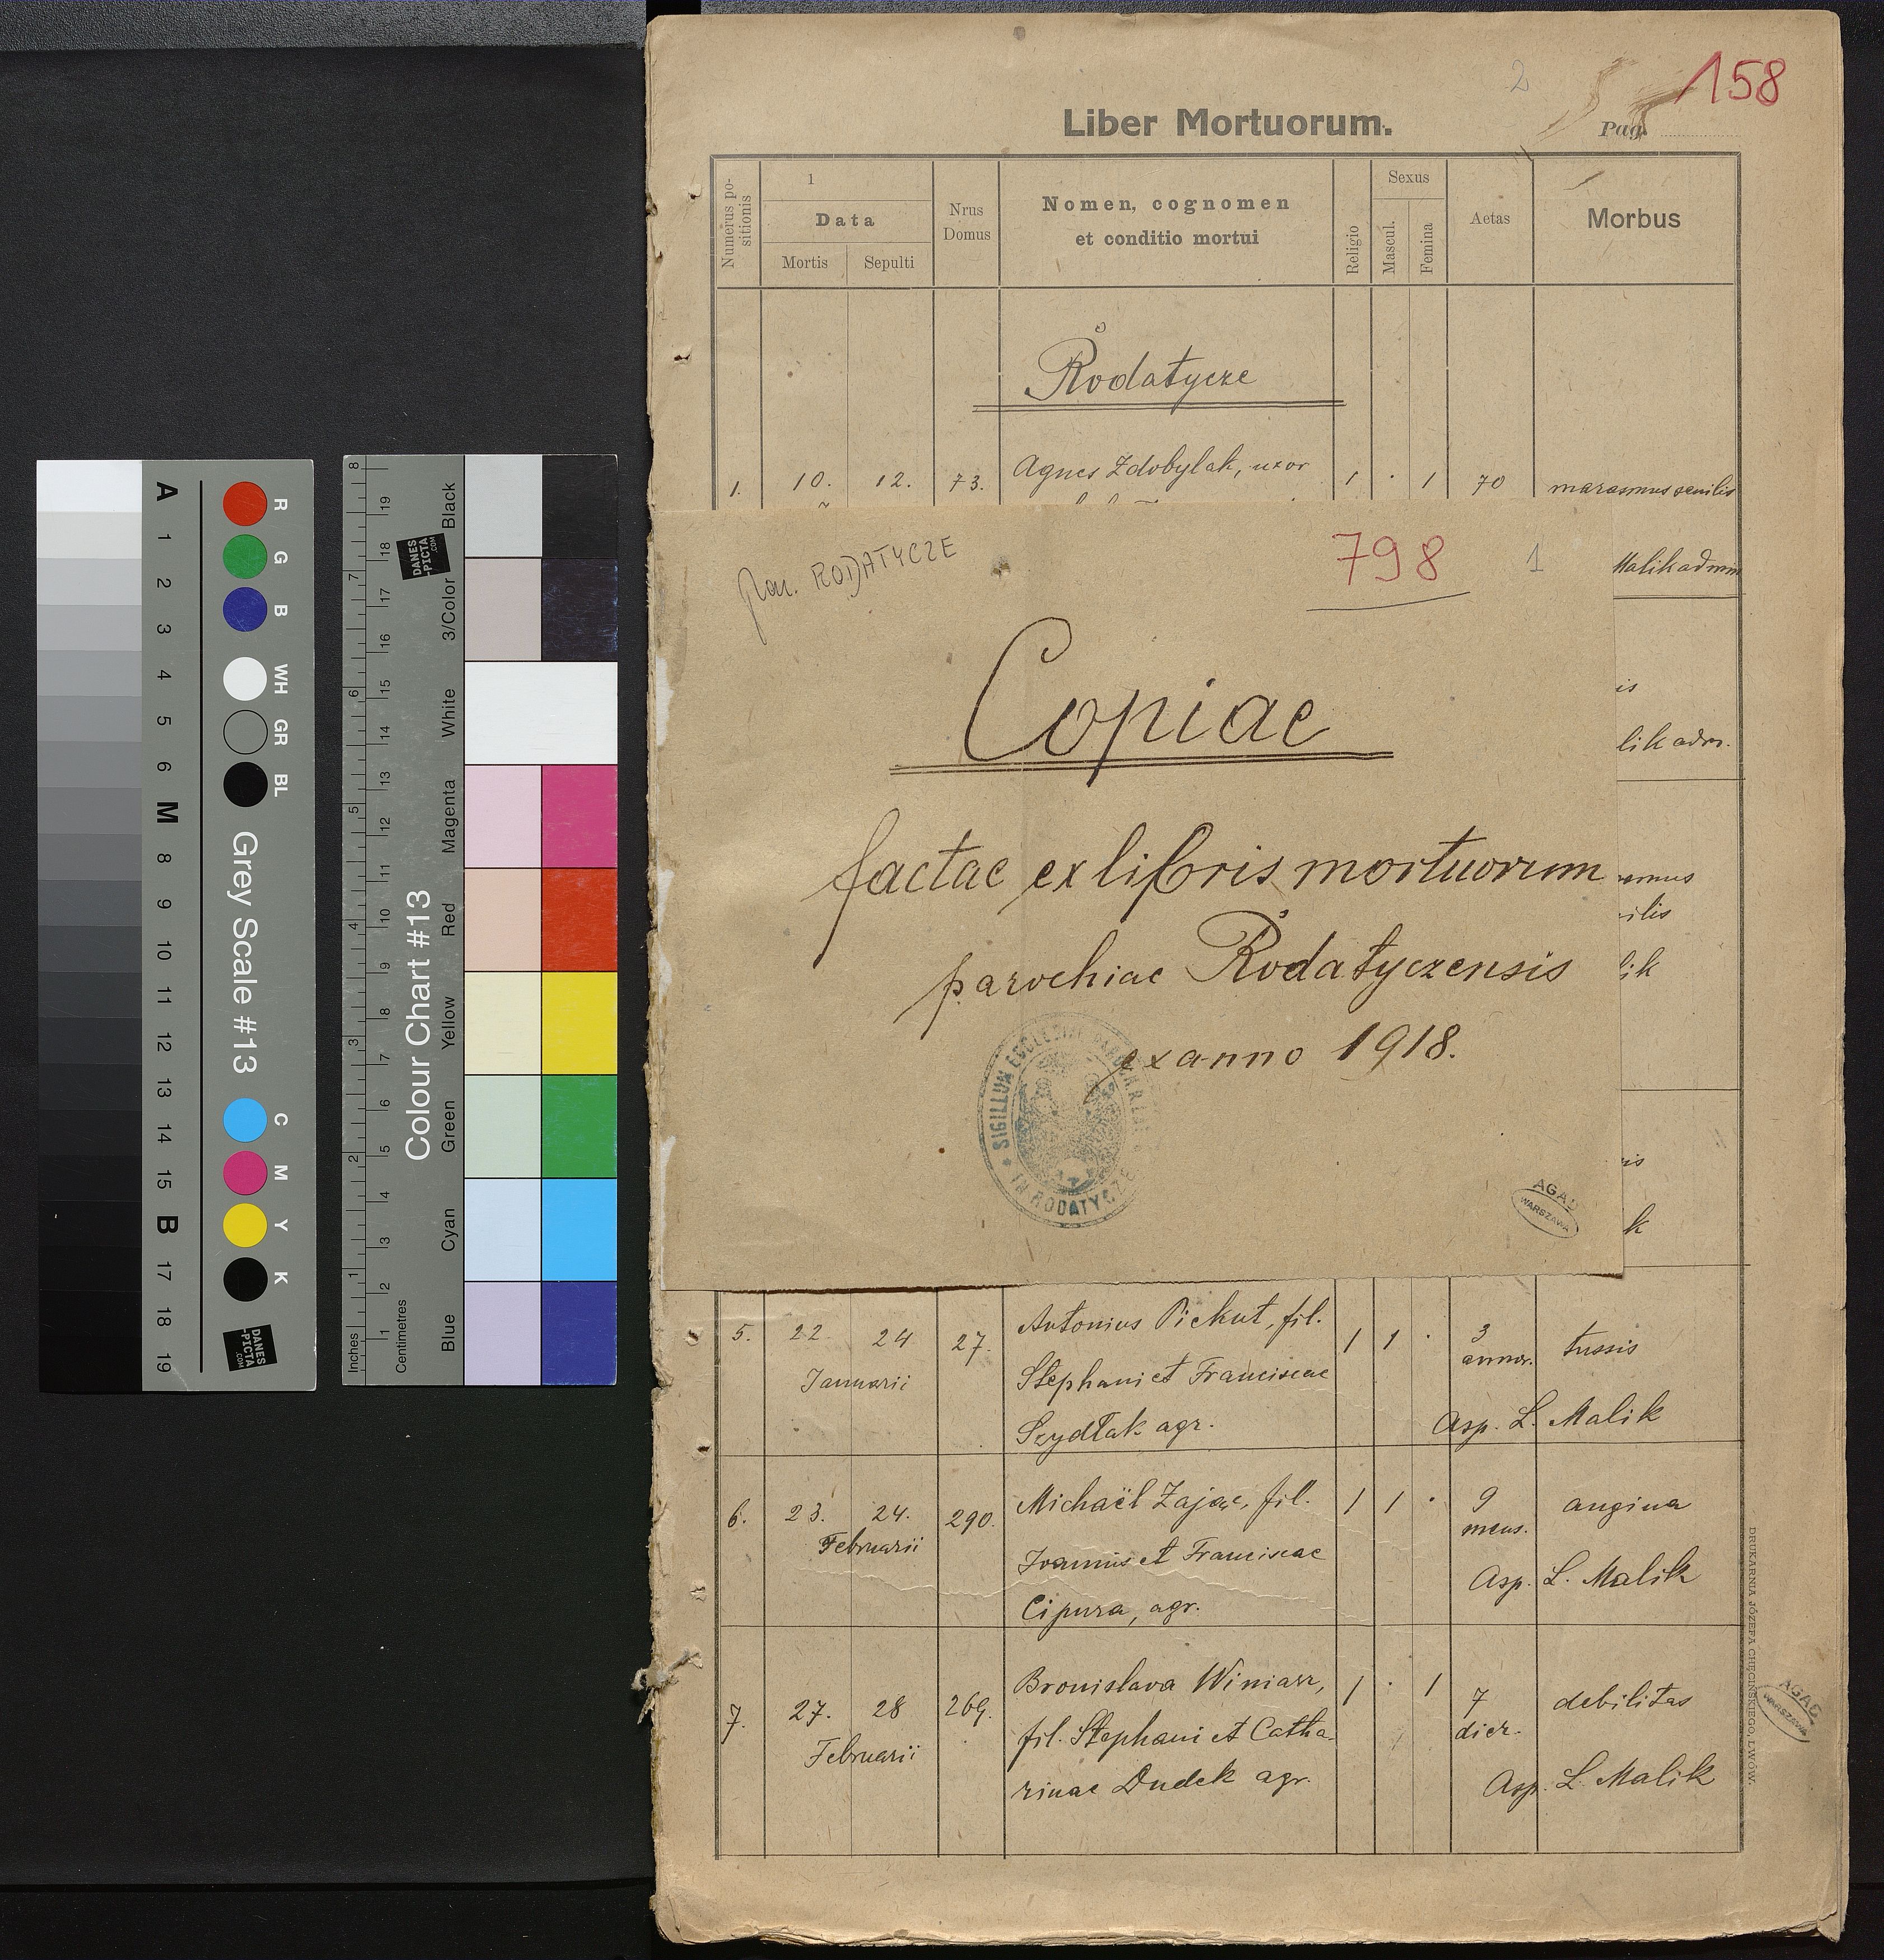 158
2
Liber Mortuorum.
Pag.
Numerus positionis
1
Data
Mortis
Sepulti
Nrus Domus
Nomen, cognomen
et conditio mortui
Religio
Sexus
Mascul.
Femina
Aetas
Morbus
Rodatycze
1. 10. 12. 73. Agnes Zdobylak, uxor 1 · 1 70 marasmus senilis
Malik adm
par. RODATYCZE
798
1
Copiae
factae ex libris mortuorum
parochiae Rodatyczensis
ex anno 1918.
SIGILLUM ECCLESIAE
IN RODATYCZE
AGAD
WARSZAWA
is
lik adm.
ilis
lik
is
k
5. 22 24 27. Antonius Piekut, fil. 1 1 · 3 annor. tussis
Januarii Stephani et Franciscae
Szydłak agr. Asp. L. Malik
6. 23. 24. 290. Michaël Zając, fil. 1 1 · 9 mens. angina
Februarii Joannis et Franciscae
Cipura, agr. Asp. L. Malik
7. 27. 28 269. Bronislava Winiarz, 1 · 1 7 dier. debilitas
Februarii fil. Stephani et Catha-
rinae Dudek agr. Asp. L. Malik
DRUKARNIA JÓZEFA CHĘCIŃSKIEGO, LWÓW.
AGAD
WARSZAWA
A 1 2 3 4 5 6 M 8 9 10 11 12 13 14 15 B 17 18 19
R G B WH GR BL
Grey Scale #13
C M Y K
DANES
-PICTA
.COM
Colour Chart #13
Inches
1 2 3 4 5 6 7 8
Centimetres
1 2 3 4 5 6 7 8 9 10 11 12 13 14 15 16 17 18 19
DANES
-PICTA
.COM
Blue Cyan Green Yellow Red Magenta White 3/Color Black